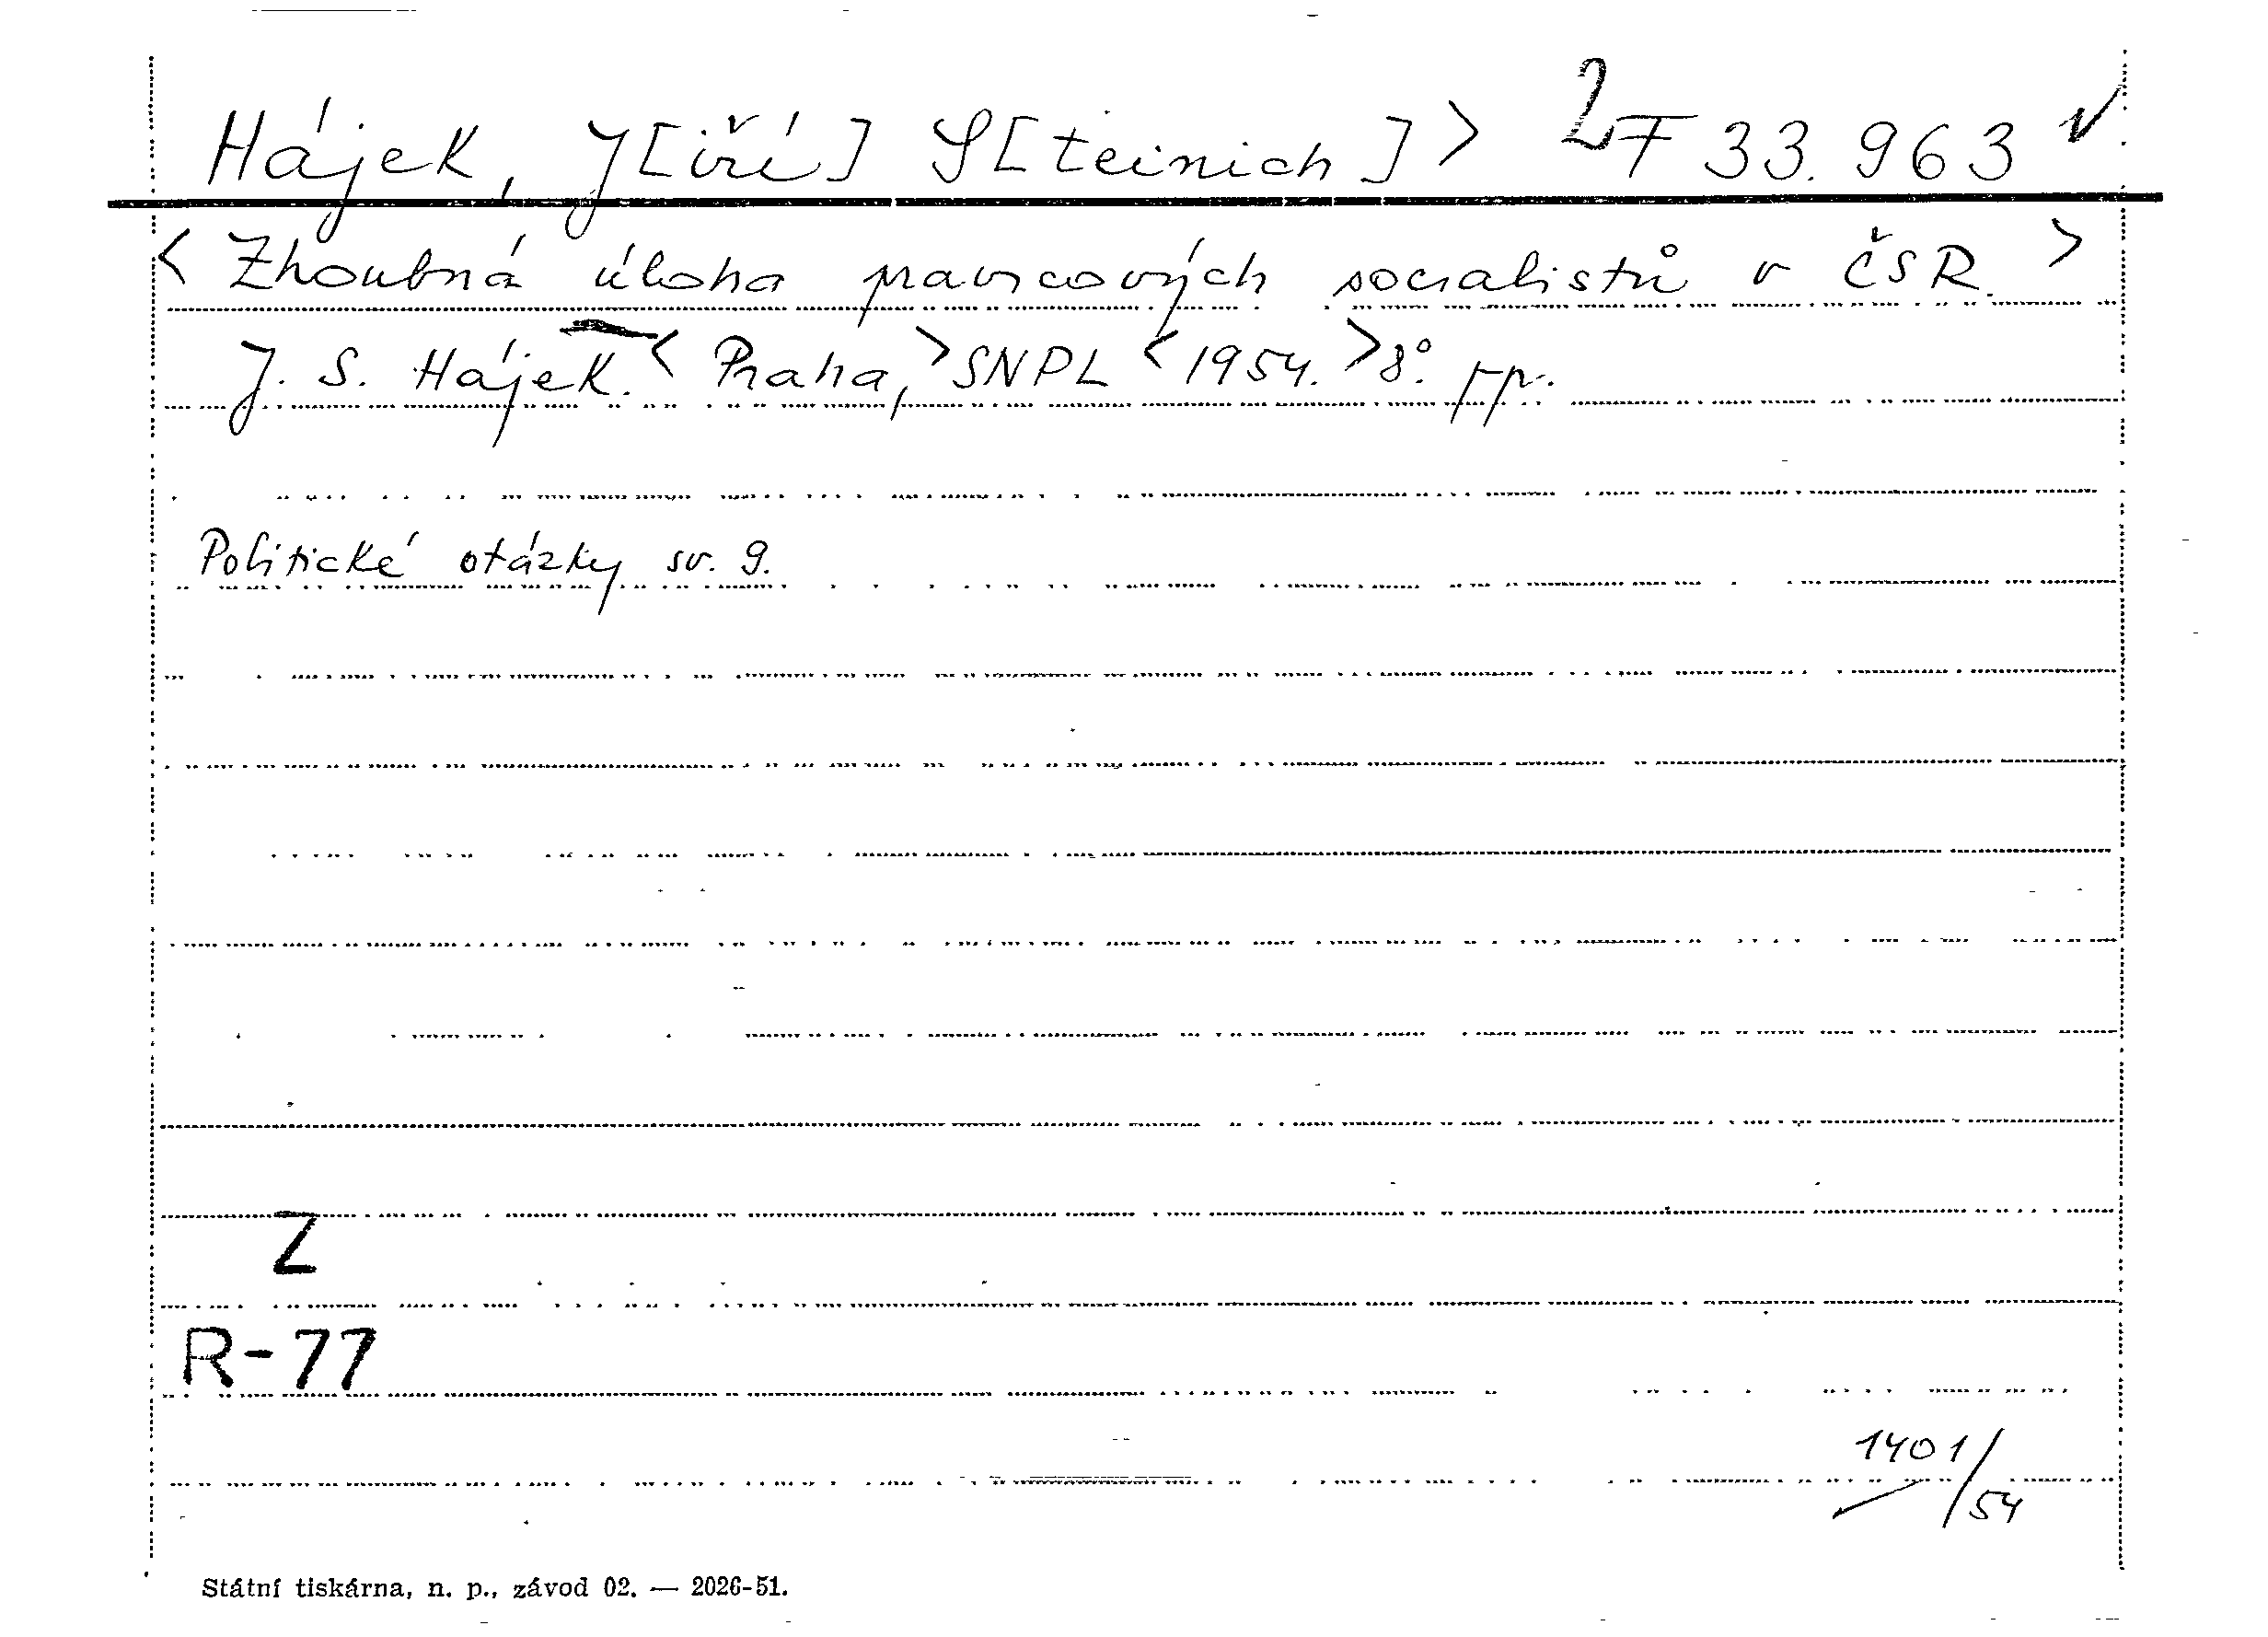 Hájek, J[iří] S[teinich] > 2 F 33.963 v.
< Zhoubná úloha pravicových socialistů v ČSR. >
J. S. Hájek. < Praha, > SNPL < 1954. > 8°. pp.
Politické otázky sv. 9.
Z
R-77
1401/54
Státní tiskárna, n. p., závod 02. — 2026-51.